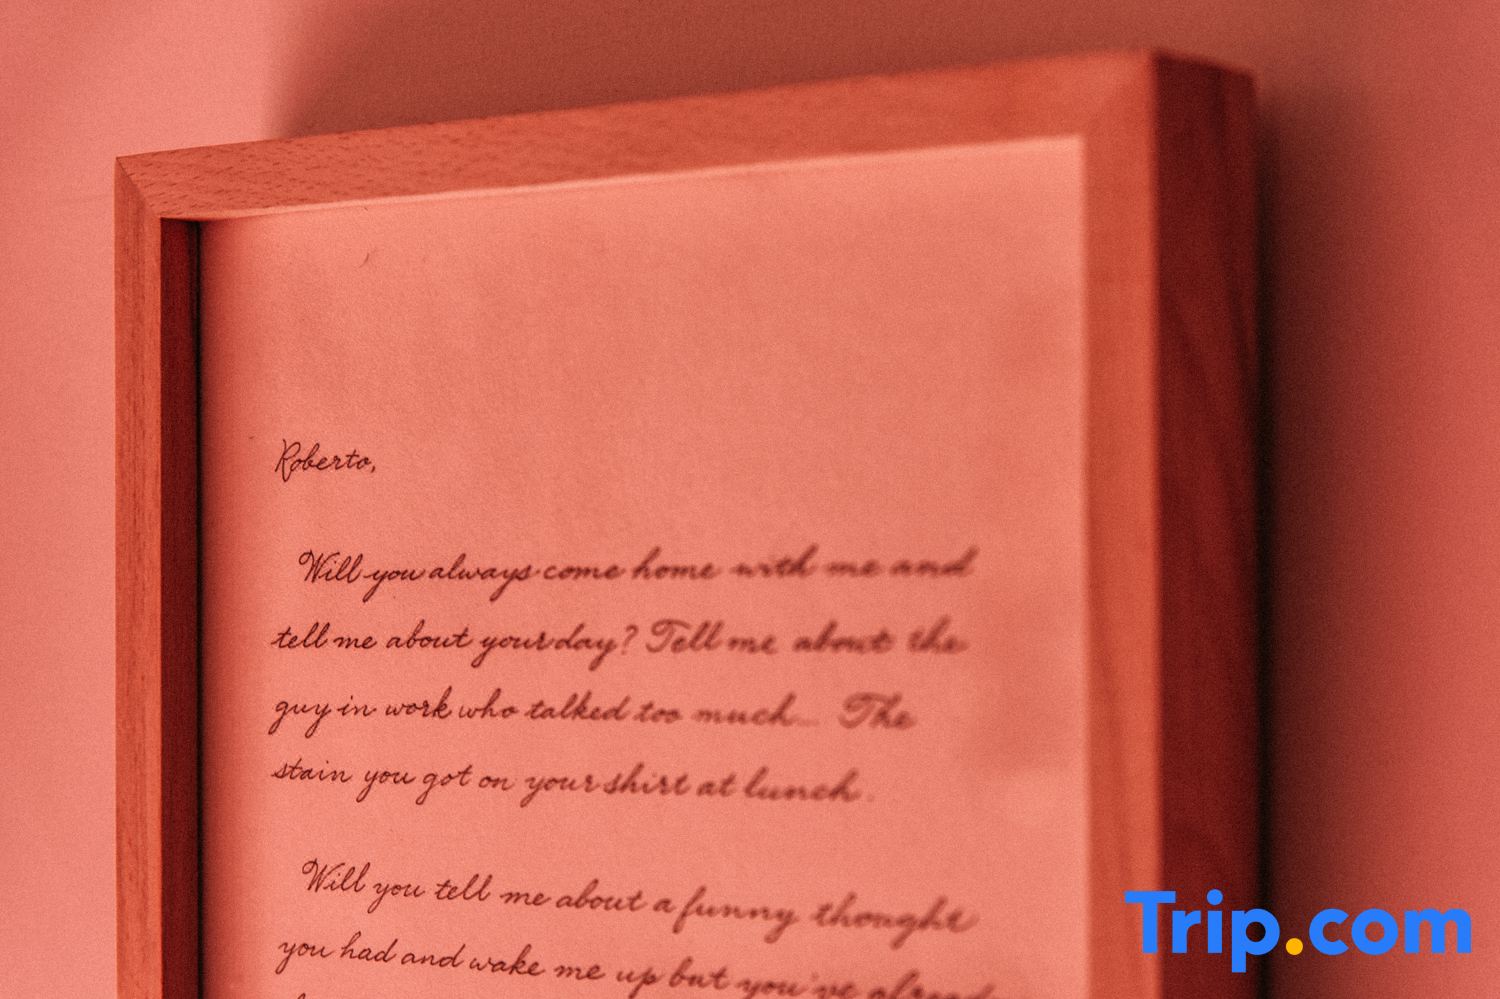 Roberto,
Will you always come home with me and
tell me about your day? Tell me about the
guy in work who talked too much... The
stain you got on your shirt at lunch.
Will you tell me about a funny thought
you had and wake me up but you've
Trip.com